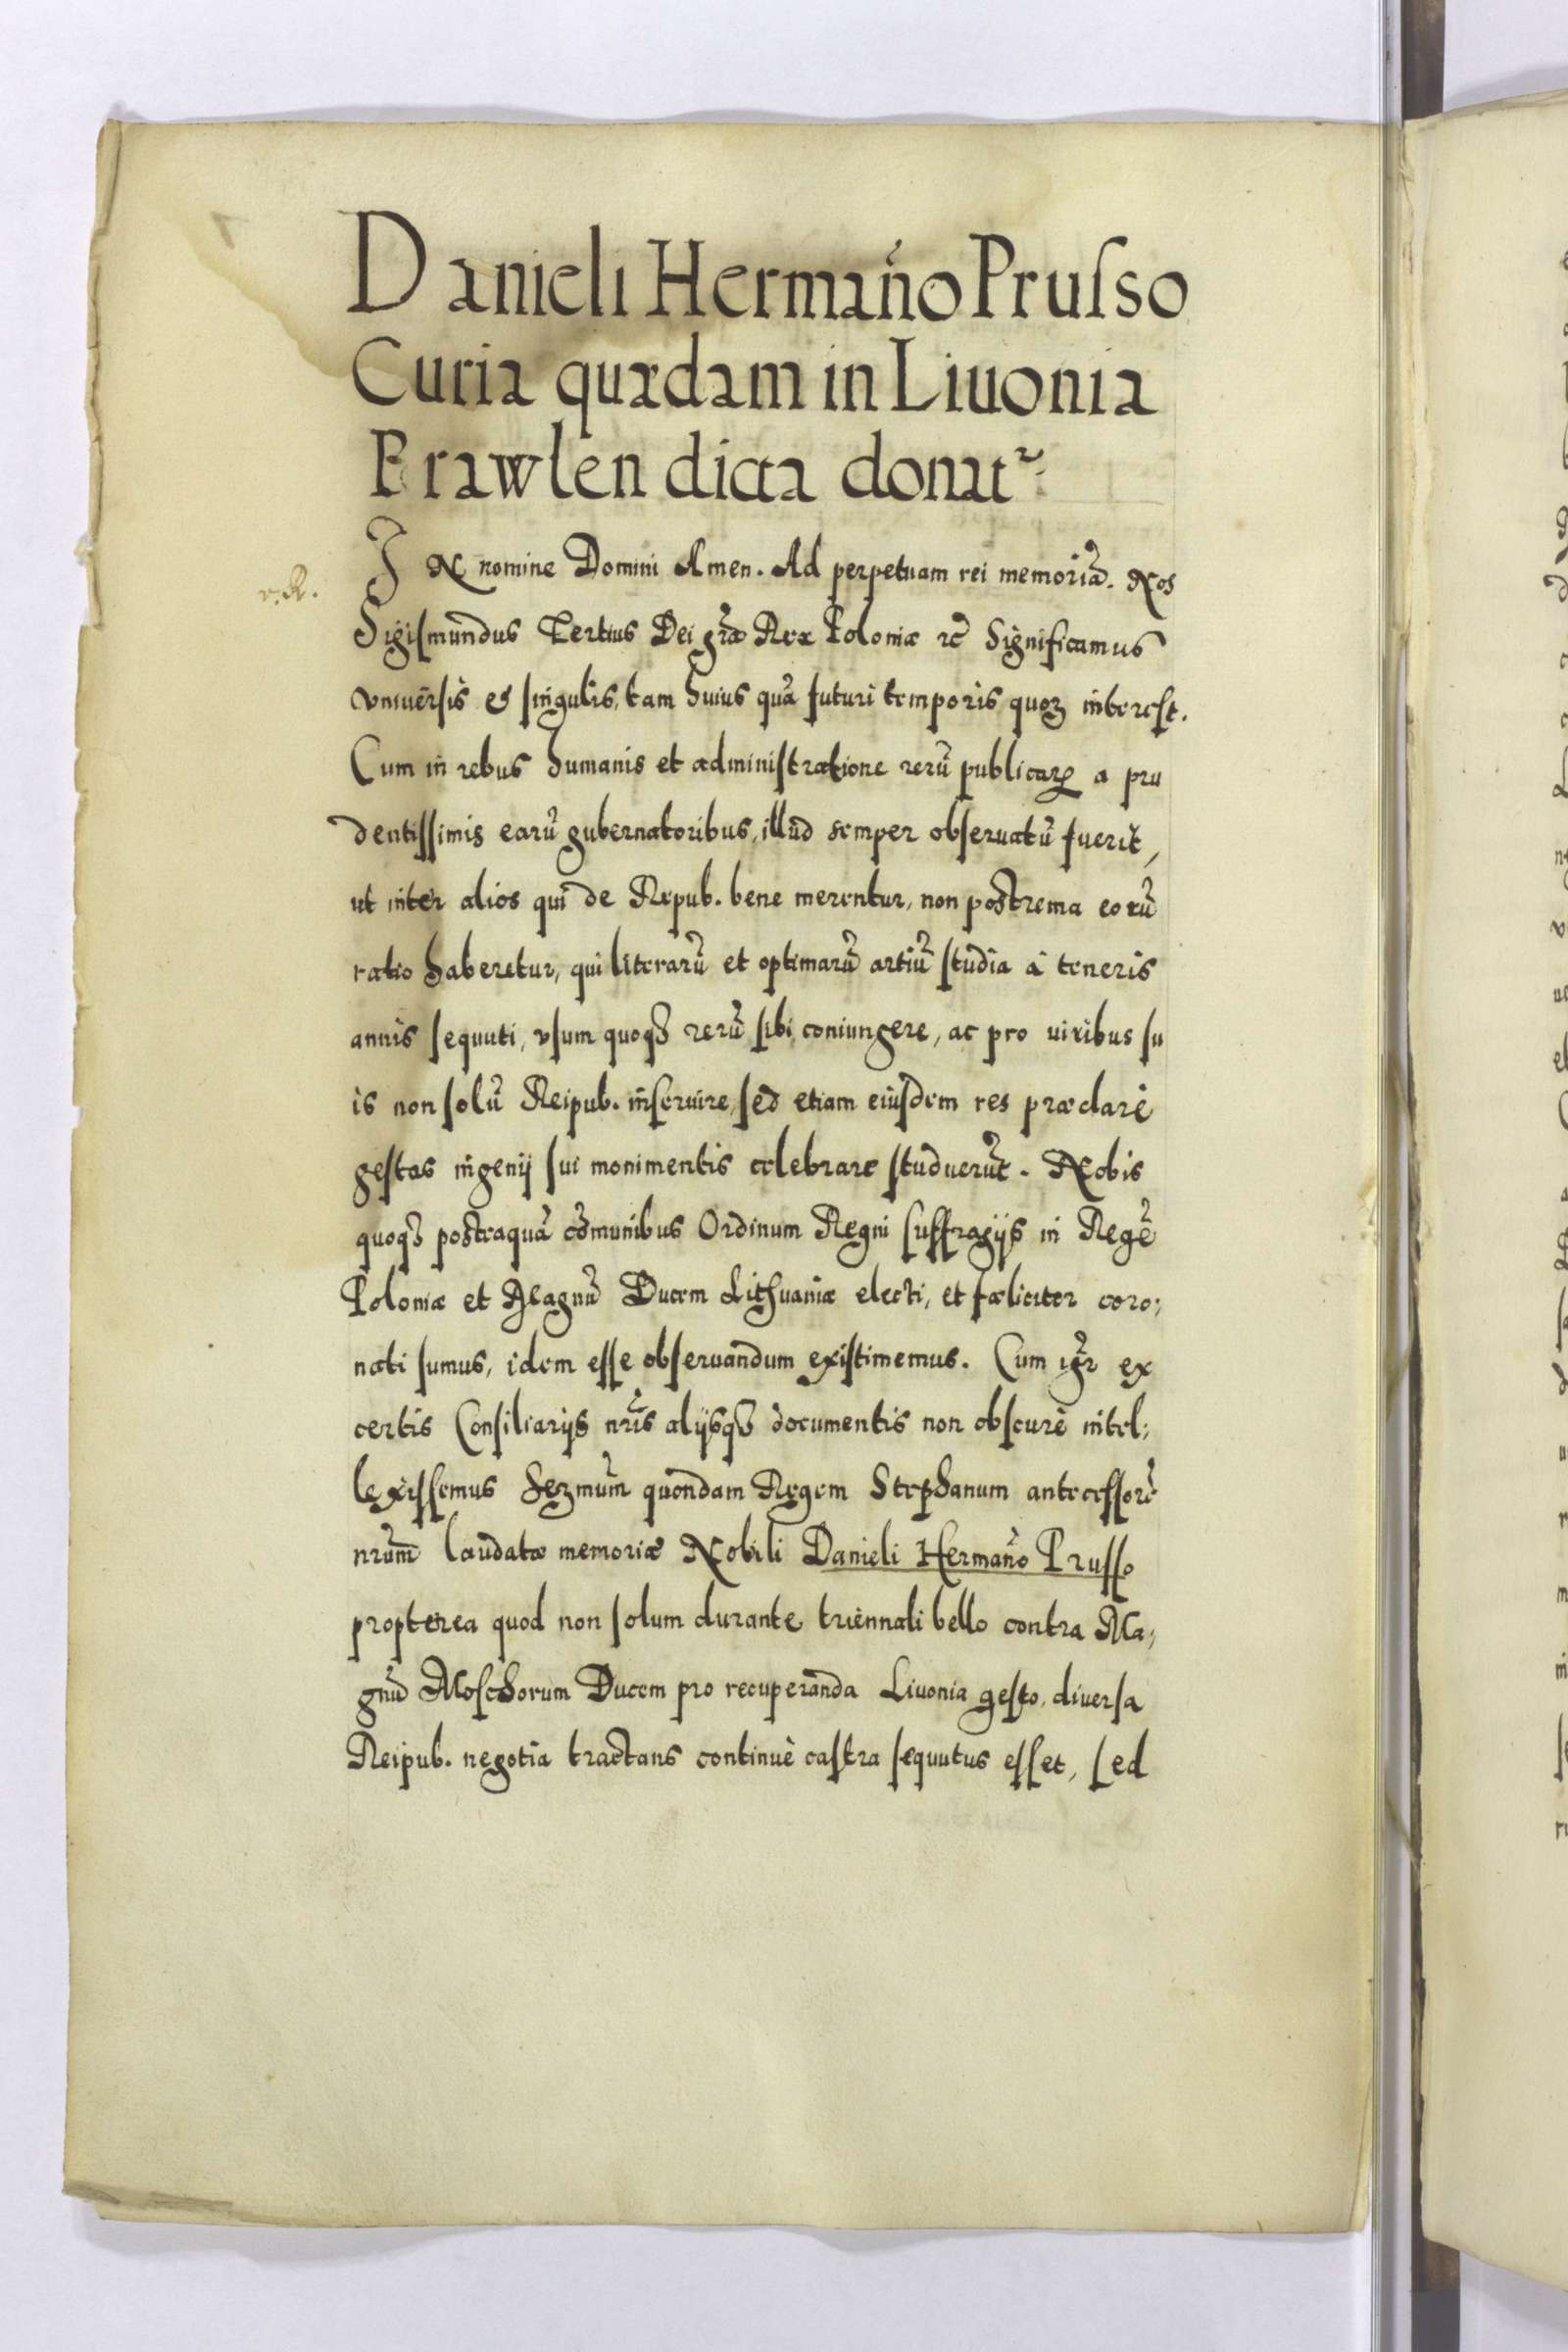 Danieli Hermañο Pruſso
Curia quædam in Liuonia
Brawlen dicta donat᷑
IN nomine Domini Amen. Ad perpetuam rei memoriã. Nos
Sigiſmundus Tertius Dei grã Rex Poloniæ ꝛc̃ Significamus
vniuersis et singulis, tam huius quã futuri temporis quoꝝ interest.
Cum in rebus humanis et administratione rerũ publicaꝝ a pru
dentiſſimis earũ gubernatoribus, illud semper obſeruatũ fuerit,
ut inter alios qui de Repub. bene merentur, non postrema eorũ
ratio haberetur, qui literarũ et optimarũ artiũ ſtudia à teneris
annis ſequuti, vſum quoqꝫ rerũ ſibi coniungere, ac pro uiribus ſu
is non ſolũ Reipub. inſeruire, ſed etiam eiuſdem res præclarè
geſtas ingenij ſui monimentis celebrare ſtuduerũt. Nobis
quoqꝫ posteaquã cõmunibus Ordinum Regni ſuffragijs in Regẽ
Poloniæ et Magnũ Ducem Lithuaniæ electi, et fæliciter coro;
nati ſumus, idem eſſe obſeruandum exiſtimemus. Cum igr̃ ex
certis Conſiliarijs nr̃is alijsqꝫ documentis non obſcurè intel;
lexiſſemus Serm̃um quondam Regem Stephanum anteceſſorẽ
nr̃um laudatæ memoriæ Nobili Danieli Hermañο Pruſſo
propterea quod non ſolum durante triennali bello contra Ma;
gnũ Moſchorum Ducem pro recuperanda Liuonia geſto, diuerſa
Reipub. negotia tractans continuè caſtra ſequutus eſſet, ſed